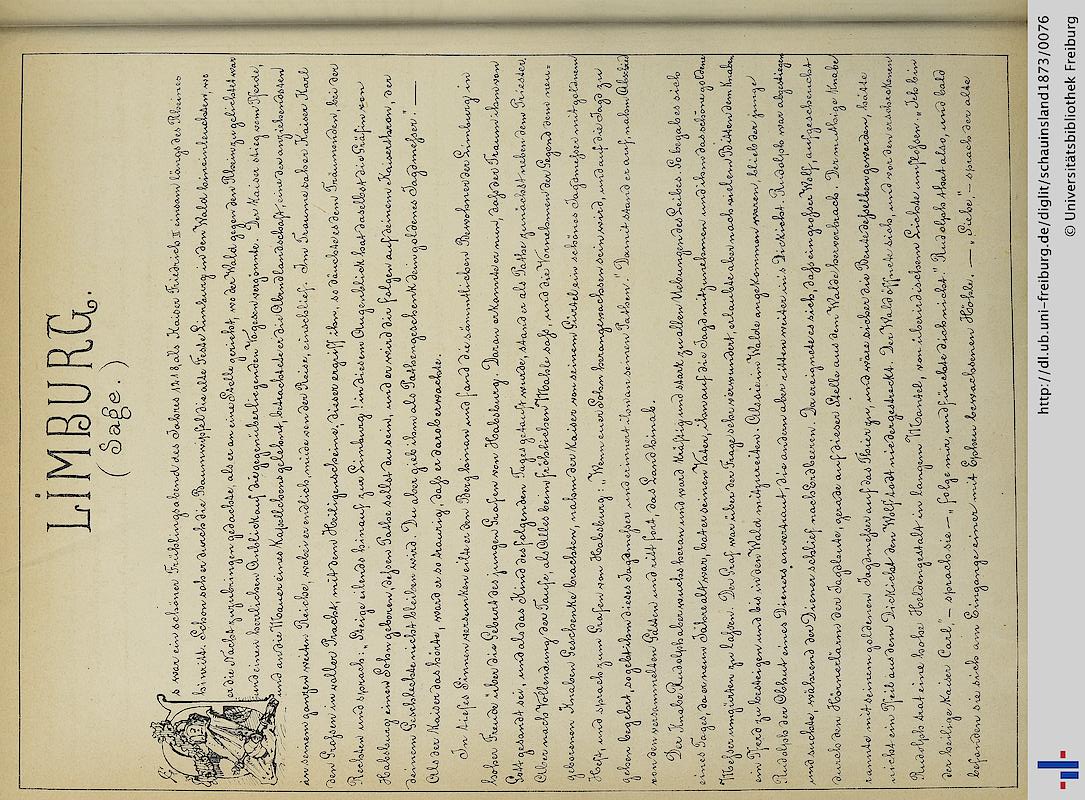 LIMBURG.
(Sage.)
Es war ein schöner Frühlingsabend des Jahres 1218, als Kaiser Friedrich II einsam längs des Rheines
hinritt. Schon sah er durch die Baumwipfel die alte Feste Limburg in den Wald hineinleuchten, wo
er die Nacht zuzubringen gedachte, als er an eine Stelle gerieth, wo der Wald gegen den Rhein zu gelichtet war
und einen herrlichen Anblick auf die gegenüberliegenden Vogesen vergönnte. Der Kaiser stieg vom Pferde,
und an die Mauer eines Kapellchens gelehnt, betrachtete er die Abendlandschaft, eine der anziehendsten
in seinem ganzen weiten Reiche, wobei er endlich, müde von der Reise, einschlief. Im Traume sah er Kaiser Karl
den Großen in voller Pracht, mit dem Heiligenscheine, dieser ergriff ihn, so däuchte es dem Träumenden, bei der
Rechten und sprach: „Steige eilends hinauf zur Limburg! in diesem Augenblick hat daselbst die Gräfin von
Habsburg einen Sohn geboren, dessen Pathe sollst du sein, und er wird dir folgen auf deinem Kaiserthron, der
deinem Geschlechte nicht bleiben wird. Du aber gieb ihm als Pathengeschenk dein goldenes Jagdmesser“. —
Als der Kaiser das hörte, ward er so traurig, daß er darob erwachte.
In tiefes Sinnen versunken eilte er den Berg hinan und fand die sämmtlichen Bewohner der Limburg in
hoher Freude über die Geburt des jungen Grafen von Habsburg. Daran erkannte er nun, daß der Traum ihm von
Gott gesandt sei, und als das Kind des folgenden Tages getauft wurde, stand er als Pathe zunächst neben dem Priester,
Aber nach Vollendung der Taufe, als Alles beim fröhlichen Mahle saß, und die Vornehmen der Gegend dem neu-
geborenen Knaben Geschenke brachten, nahm der Kaiser von seinem Gürtel ein schönes Jagdmesser mit goldnem
Heft, und sprach zum Grafen von Habsburg: „Wenn euer Sohn herangewachsen sein wird, und auf die Jagd zu
gehen begehrt, so gebt ihm dieses Jagdmesser und erinnert ihn an seinen Pathen.“ Damit stand er auf, nahm Abschied
von den versammelten Gästen und ritt fort, das Land hinab.
Der Knabe Rudolph aber wuchs heran und ward kräftig und stark zu allen Uebungen des Leibes. So begab es sich
eines Tages, da er neun Jahre alt war, bat er seinen Vater, ihn auf die Jagd mitzunehmen und ihm das schöne goldene
Messer umgürten zu lassen. Der Graf war über der Frage sehr verwundert, erlaubte aber nach vielem Bitten dem Knaben,
ein Pferd zu besteigen und bis in den Wald mitzureiten. Als sie im Walde angekommen waren, blieb der junge
Rudolph der Obhut eines Dieners anvertraut, die andern aber ritten weiter ins Dickicht. Rudolph war abgestiegen
und suchte, während der Diener schlief, nach Erdbeeren. Da ereignete es sich, daß ein großer Wolf, aufgescheucht
durch den Hörnerlärm der Jagdleute, gerade auf dieser Stelle aus dem Walde hervorbrach. Der muthige Knabe
rannte mit seinem goldenen Jagdmesser auf das Thier zu, und wäre sicher die Beute desselben geworden, hätte
nicht ein Pfeil aus dem Dickicht den Wolf todt niedergestreckt. Der Wald öffnete sich, und vor den erschrockenen
Rudolph trat eine hohe Heldengestalt in langem Mantel, von überirdischem Lichte umflossen. „Ich bin
der heilige Kaiser Carl,“ – sprach sie – „folge mir, und fürchte dich nicht.“ Rudolph that also, und bald
befanden sie sich am Eingange einer mit Epheu bewachsenen Höhle. — „Siehe,“ – sprach der alte
http://dl.ub.uni-freiburg.de/diglit/schauinsland1873/0076
© Universitätsbibliothek Freiburg